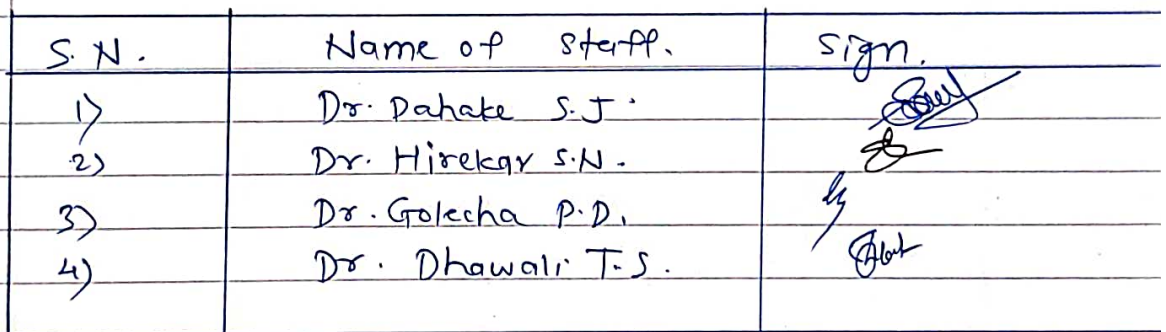 S. N. Name of staff. Sign.
1) Dr. Dahake S.J.
2) Dr. Hirekar S.N.
3) Dr. Golecha P.D.
4) Dr. Dhawali T.S.